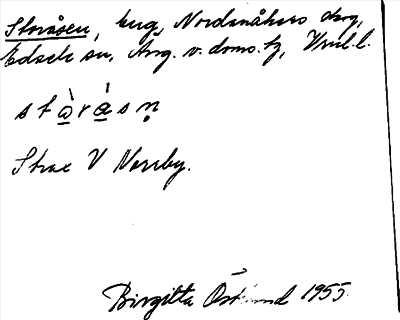 Storåsen, berg, Nordanåkers skog,
Edsele sn, Ång. v. doms. tg, Vnrl. l.
stòråsn̥
Strax V Norrby.
Birgitta Östlund 1955